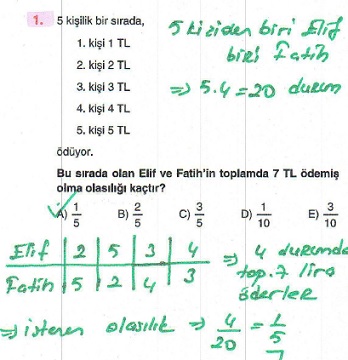 1. 5 kişilik bir sırada,
1. kişi 1 TL
2. kişi 2 TL
3. kişi 3 TL
4. kişi 4 TL
5. kişi 5 TL
ödüyor.
5 kişiden biri Elif
biri Fatih
=> 5.4=20 durum
Bu sırada olan Elif ve Fatih'in toplamda 7 TL ödemiş
olma olasılığı kaçtır?
A) 1/5 B) 2/5 C) 3/5 D) 1/10 E) 3/10
Elif | 2 | 5 | 3 | 4
Fatih | 5 | 2 | 4 | 3
=> 4 durumda
top. 7 lira
öderler
=> istenen olasılık => 4/20 = 1/5